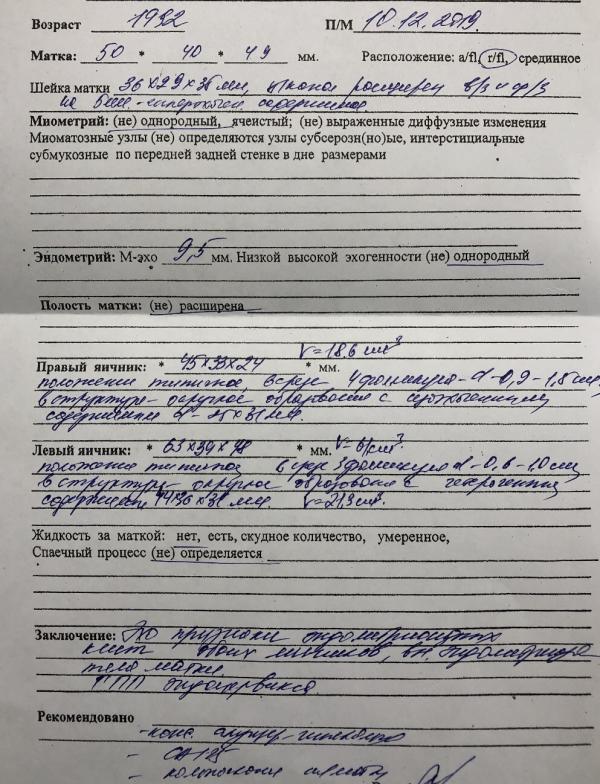 Возраст 1992 П/М 10.12.2019
Матка: 50 * 40 * 49 мм. Расположение: a/fl, r/fl, срединное
Шейка матки 36х29х36 мм, ц.канал расширен в/з и ф/з
Миометрий: (не) однородный, ячеистый; (не) выраженные диффузные изменения
Миоматозные узлы (не) определяются узлы субсерозн(но)ые, интерстициальные
субмукозные по передней задней стенке в дне размерами
Эндометрий: М-эхо 9,5 мм. Низкой высокой эхогенности (не) однородный
Полость матки: (не) расширена
V=18,6 cm³
Правый яичник: * 45х33х24 * мм.
положение типичное, в срезе 4 фолликула d-0,9-1,8 см,
в структуре округлое образование с
содержимым d-25х31 мм.
Левый яичник: * 63х39х48 * мм. V=61cm³.
положение типичное в срезе 3 фолликула d-0,6-1,0 см
в структуре округлое образование с гетерогенным
содержим. 44х36х31 мм. V=
Жидкость за маткой: нет, есть, скудное количество, умеренное,
Спаечный процесс (не) определяется
Заключение: Эхо признаки эндометриоидных
кист обоих яичников, вн. эндометриоза
тела матки.
ГПП эндоцервикса
Рекомендовано
- конс. акушер-гинеколога
- СА 125